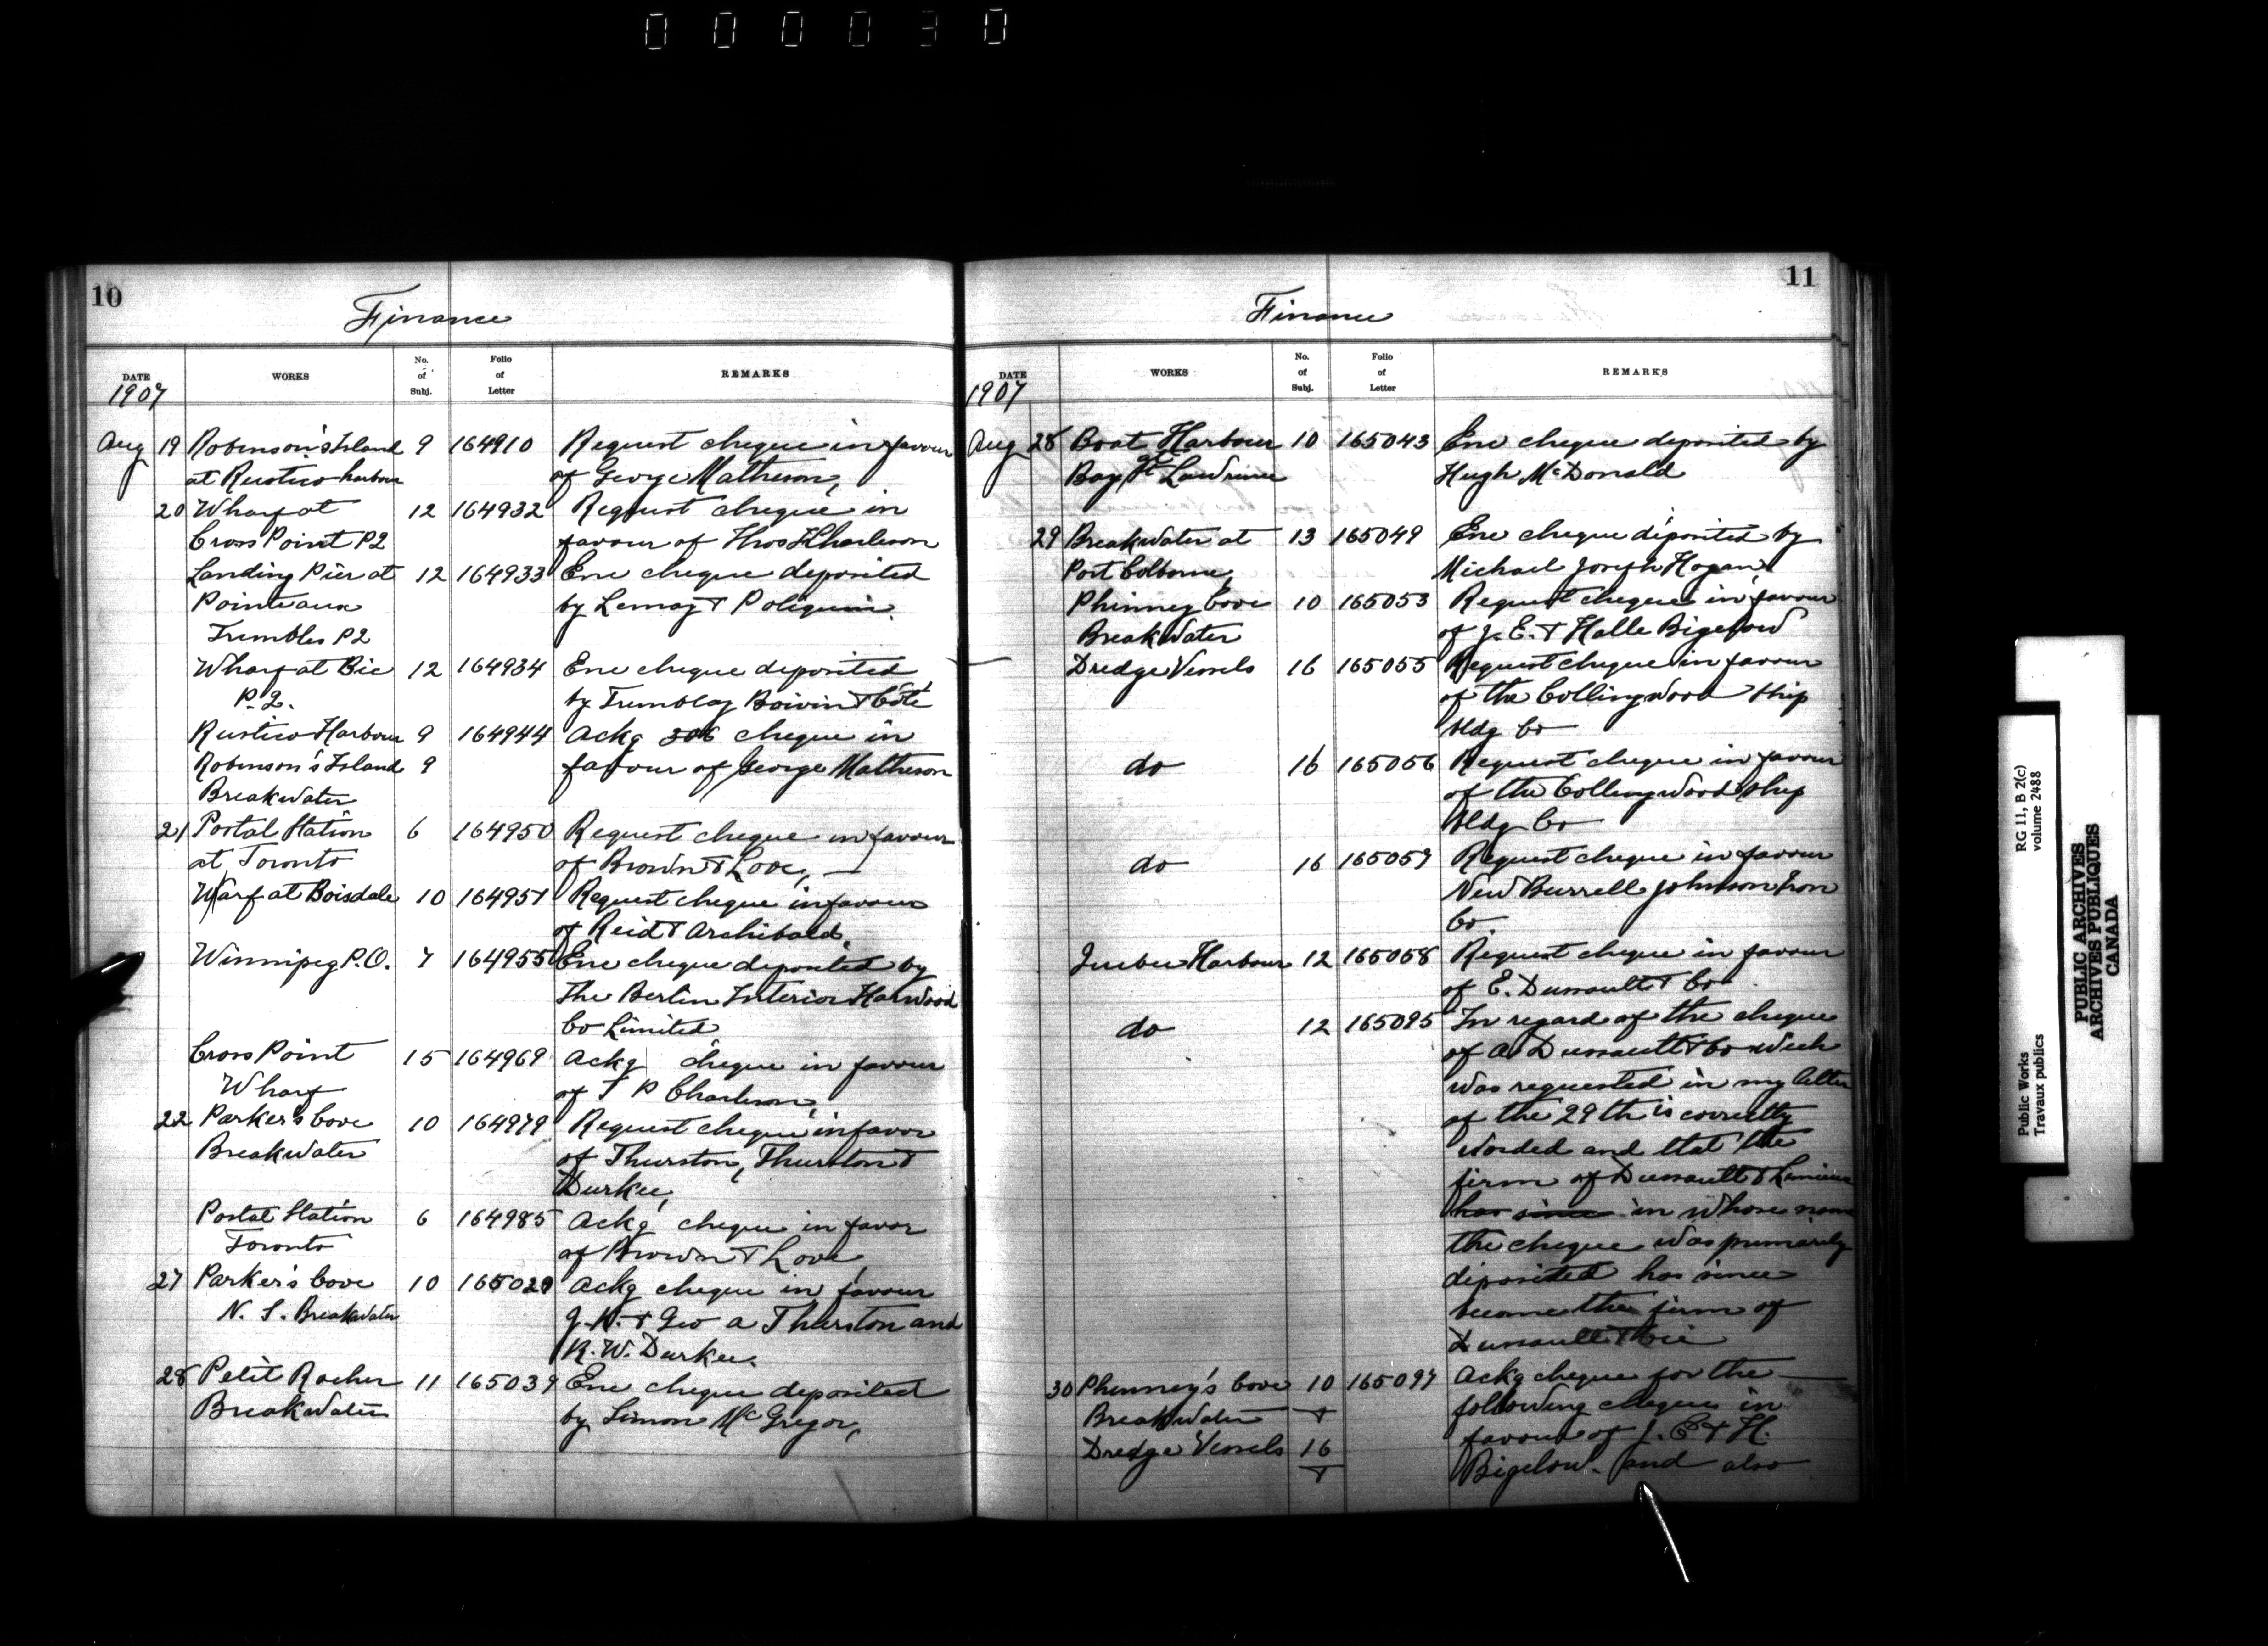 000030
10
Finance
DATE WORKS No. of Subj. Folio of Letter REMARKS
1907
Aug 19 Robinson's Island 9 164910 Request cheque in favour
at Rustico harbour of George Matheson,
20 Wharf at 12 164932 Request cheque in
Cross Point P2 favour of Thos Charleson
Landing Pier at 12 164933 Enc cheque deposited
Pointe aux by Lemay & Poliquin.
Trembles P2
Wharf at Bic 12 164934 Enc cheque deposited
P.2. by Tremblay Boivin & Côté
Rustico Harbour 9 164944 Ackg 306 cheque in
Robinson's Island 9 favour of George Matheson
Breakwater
21 Postal Station 6 164950 Request cheque in favour
at Toronto of Brown & Love,
Warf at Boisdale 10 164951 Request cheque in favour
of Reid & Archibald,
Winnipeg P.O. 7 164955 Enc cheque deposited by
The Berlin Interior Harwood
Co Limited
Cross Point 15 164969 Ackg cheque in favour
Wharf of T P Charleson,
22 Parker's Cove 10 164979 Request cheque in favor
Breakwater of Thurston, Thurston &
Durkee,
Postal Station 6 164985 Ackg cheque in favor
Toronto of Brown & Love
27 Parker's Cove 10 165020 Ackg cheque in favour
N. S. Breakwater J. K. & Geo a Thurston and
K. W. Durkee.
28 Petit Rocher 11 165039 Enc cheque deposited
Breakwater by Simon McGregor,
11
Finance
DATE WORKS No. of Subj. Folio of Letter REMARKS
1907
Aug 28 Boat Harbour 10 165043 Enc cheque deposited by
Bay St Lawrence Hugh McDonald
29 Breakwater at 13 165049 Enc cheque deposited by
Port Colborne, Michael Joseph Hogan,
Phinney Cove 10 165053 Request cheque in favour
Breakwater of J. E. & Halle Bigelow
Dredge Vessels 16 165055 Request cheque in favour
of the Collingwood Ship
bldg Co
do 16 165056 Request cheque in favour
of the Collingwood Ship
bldg Co
do 16 165057 Request cheque in favour
New Burrell Johnson Iron
Co.
Quebec Harbour 12 165058 Request cheque in favour
of E. Dussault & Co
do 12 165095 In regard of the cheque
of A Dussault & Co wich
was requested in my letter
of the 29th is correctly
worded and that the
firm of Dussault & Lemieux
has since in whose name
the cheque was primarily
deposited has since
become the firm of
Dussault & Cie
30 Phinney's Cove 10 165097 Ackg cheque for the
Breakwater & following cheques in
favour of J. E & H.
Dredge Vessels 16 Bigelow. and also
&
Public Works
Travaux publics
RG 11, B 2(c)
volume 2488
PUBLIC ARCHIVES
ARCHIVES PUBLIQUES
CANADA